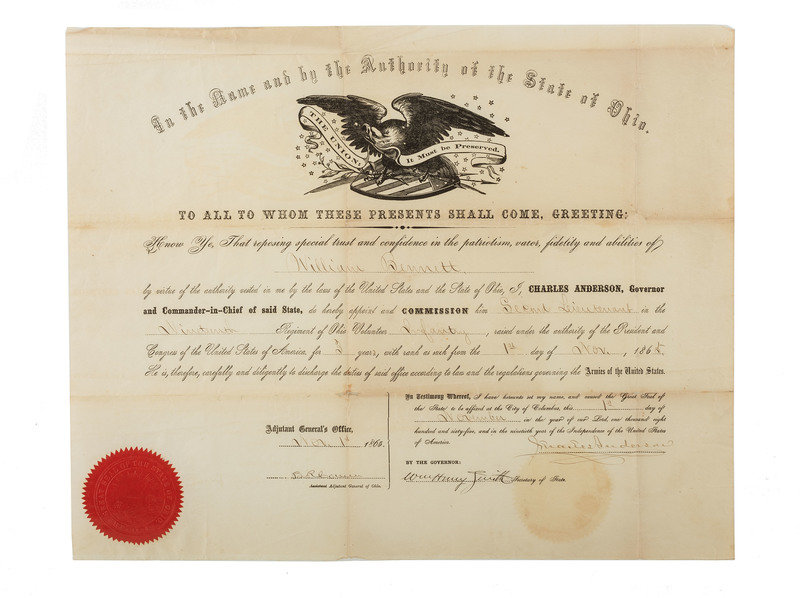 In the Name and by the Authority of the State of Ohio.
THE UNION: It Must be Preserved.
TO ALL TO WHOM THESE PRESENTS SHALL COME, GREETING:
Know Ye, That reposing special trust and confidence in the patriotism, valor, fidelity and abilities of
William Bennett
by virtue of the authority vested in me by the laws of the United States and the State of Ohio, I, CHARLES ANDERSON, Governor
and Commander-in-Chief of said State, do hereby appoint and COMMISSION him Second Lieutenant in the
Regiment of Ohio Volunteer Infantry, raised under the authority of the President and
Congress of the United States of America, for 3 years, with rank as such from the 1st day of Nov., 1865.
He is, therefore, carefully and diligently to discharge the duties of said office according to law and the regulations governing the Armies of the United States.
In Testimony Whereof, I have hereunto set my name, and caused the Great Seal of
the State to be affixed at the City of Columbus, this 1st day of
November in the year of our Lord one thousand eight
hundred and sixty-five, and in the ninetieth year of the Independence of the United States
of America.
Charles Anderson
BY THE GOVERNOR:
Wm Henry Smith Secretary of State.
Adjutant General's Office,
Nov. 1st 1865
Assistant Adjutant General of Ohio.